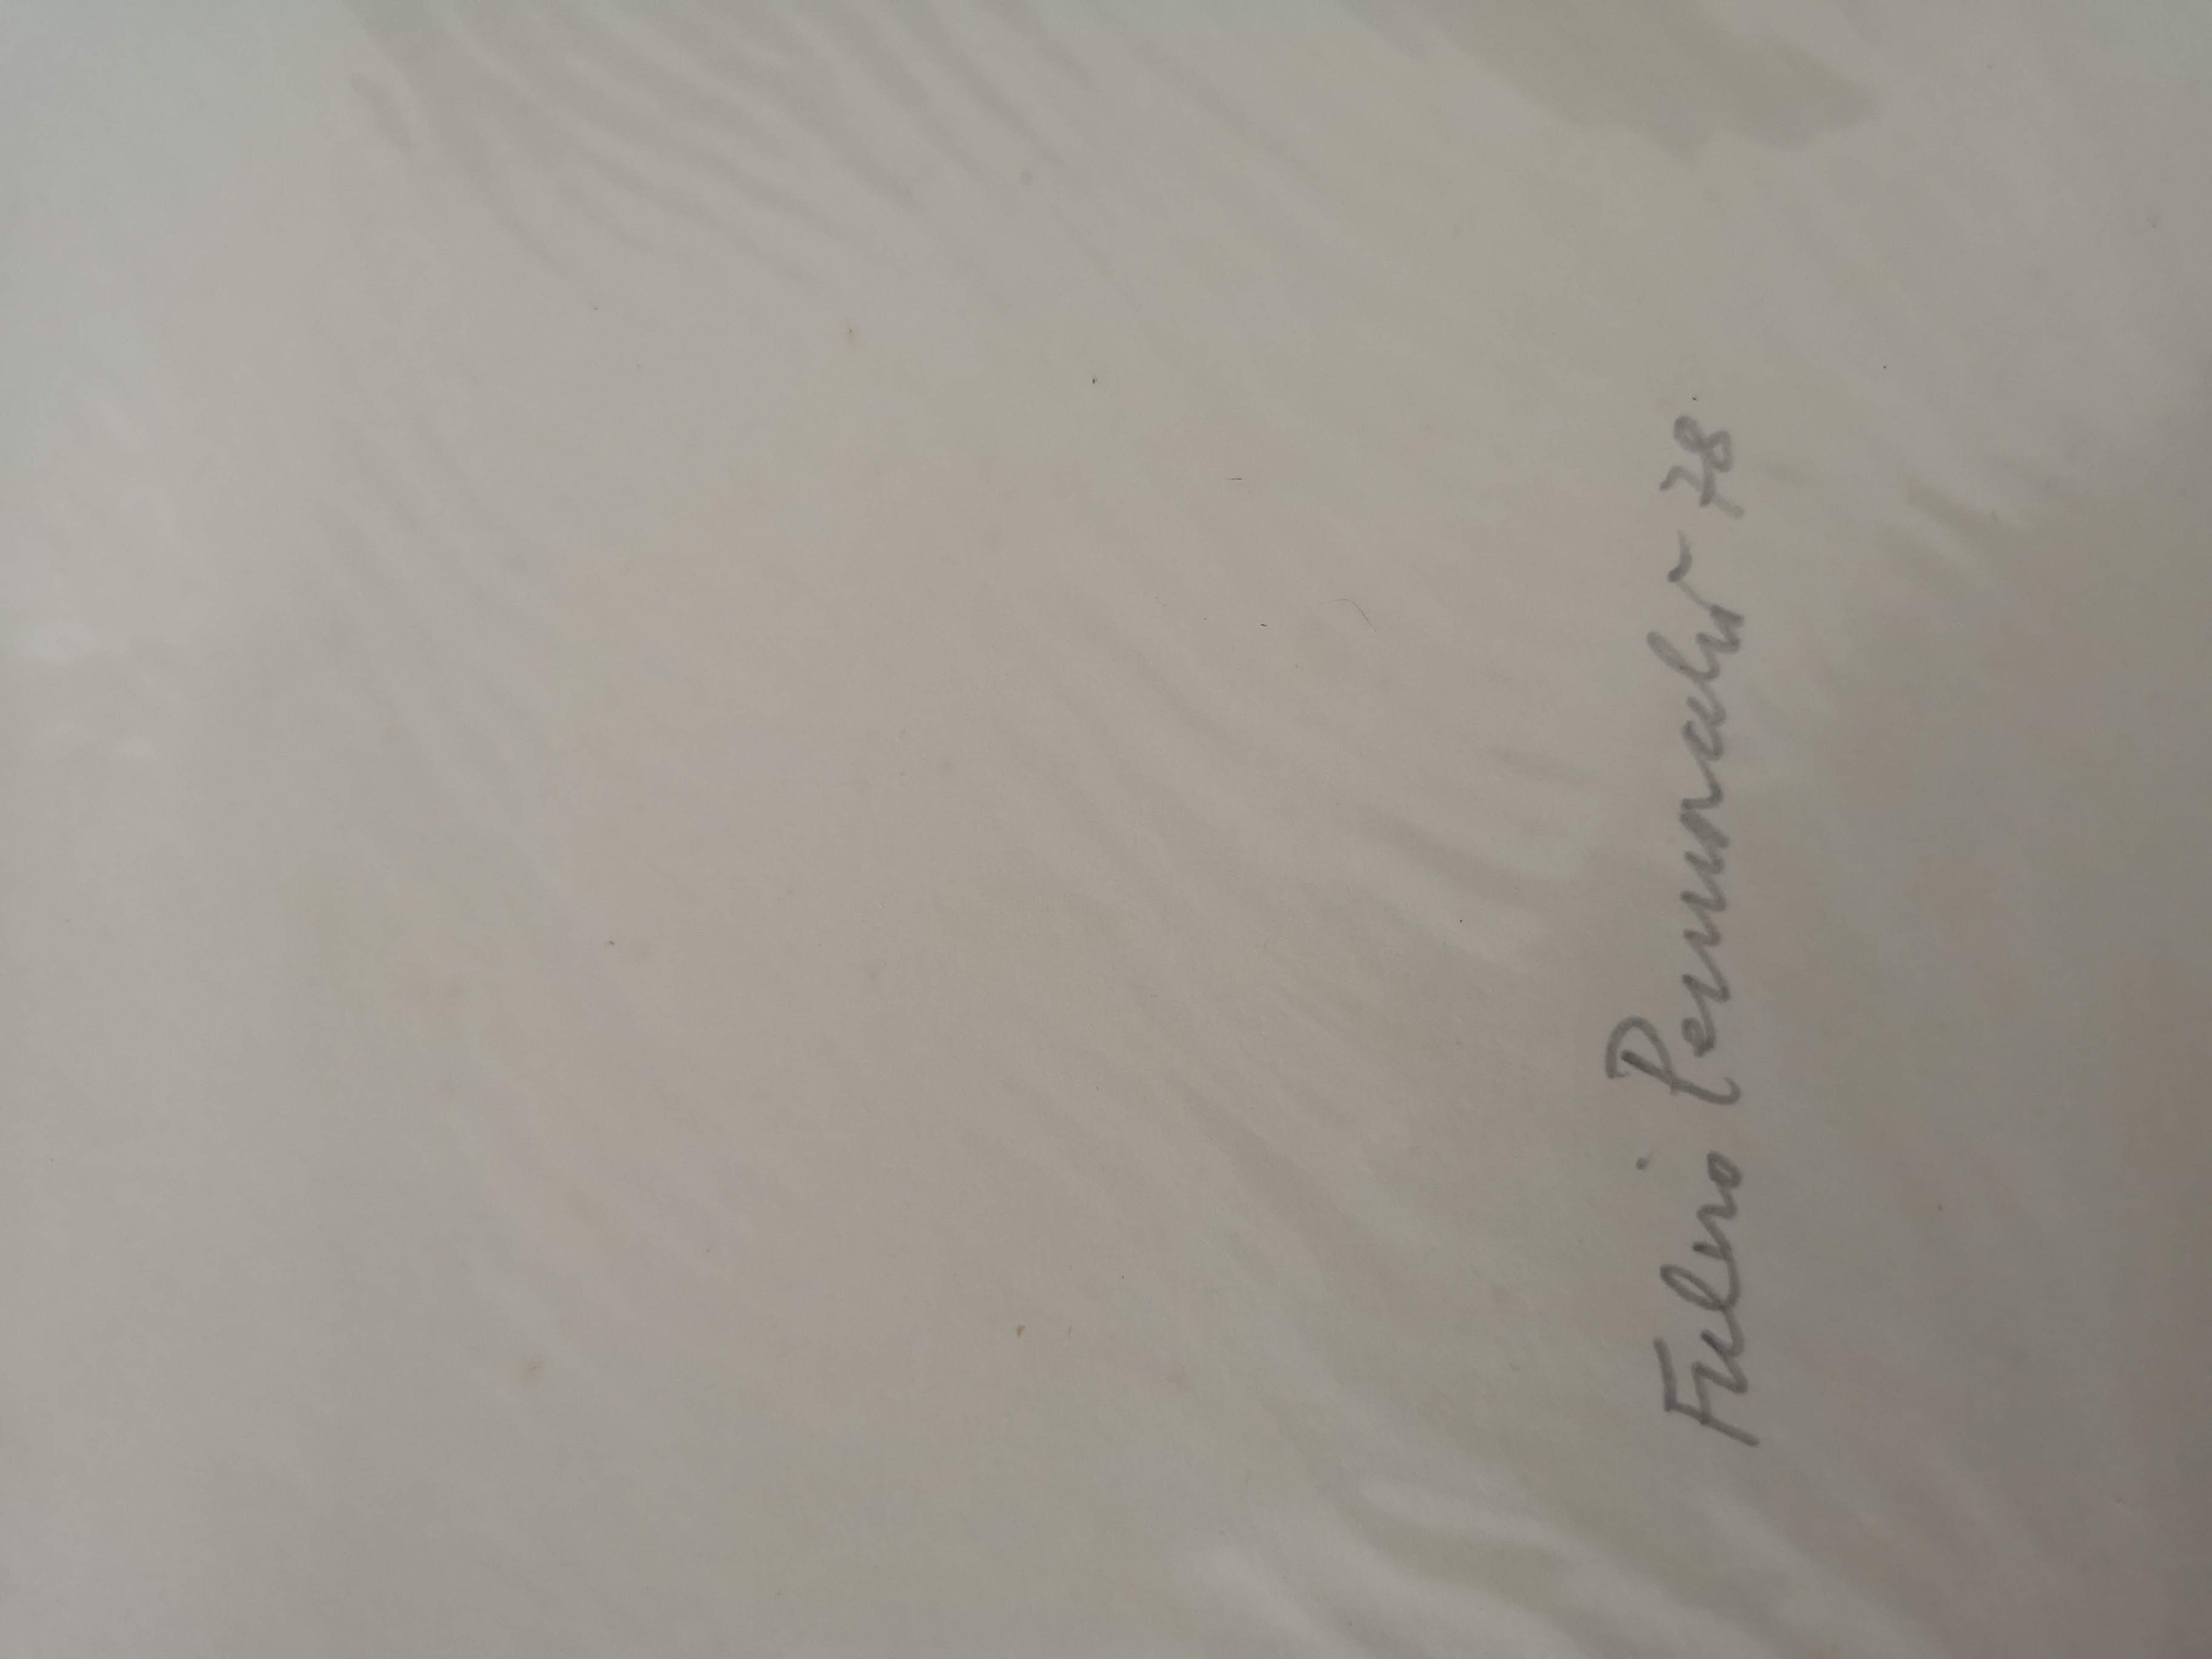 Fulvio Pennacchi 78